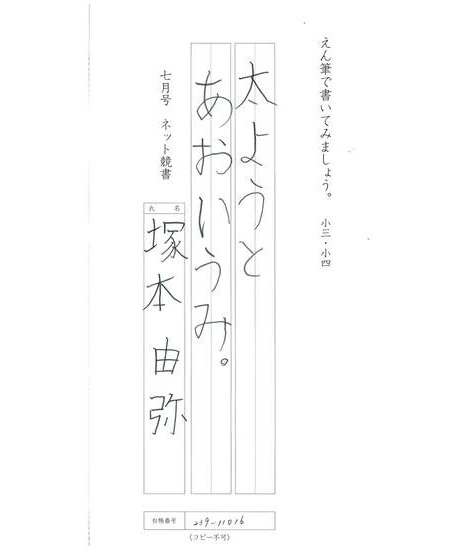 えん筆で書いてみましょう。 小三・小四
太ようと
あおいうみ。
七月号 ネット競書
氏名
塚本由弥
台帳番号 239-11016
(コピー不可)